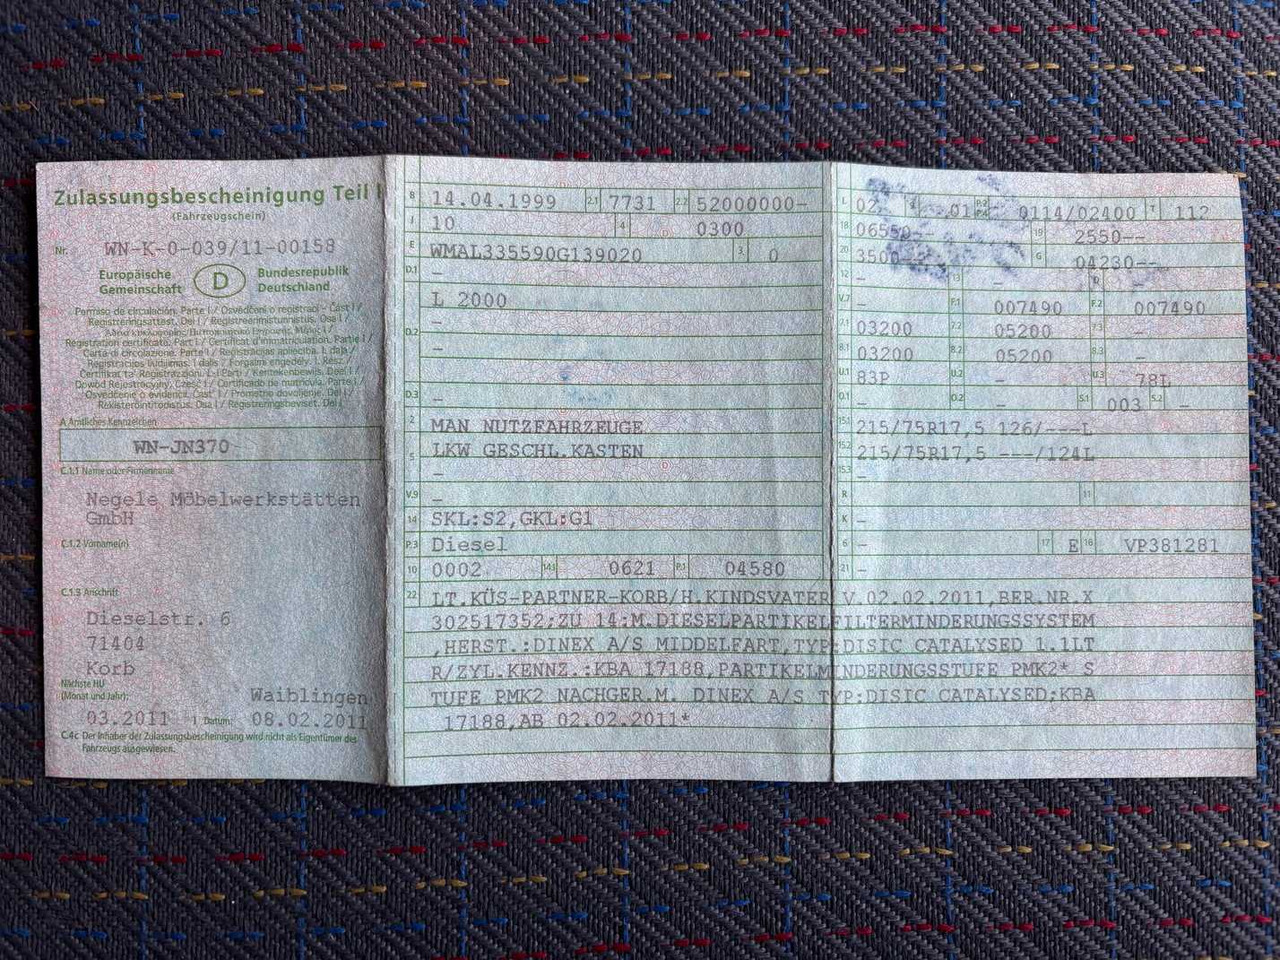 Zulassungsbescheinigung Teil I
(Fahrzeugschein)
Nr. WN-K-0-039/11-00158
Europäische Gemeinschaft D Bundesrepublik Deutschland
Permiso de circulación. Parte I / Osvědčení o registraci - Část I /
Registreringsattest. Del I / Registreerimistunnistus. Osa I /
Registration certificate. Part I / Certificat d'immatriculation. Partie I /
Carta di circolazione. Parte I / Reģistrācijas apliecība. I. daļa /
A Amtliches Kennzeichen
WN-JN370
C.1.1 Name oder Firmenname
Negele Möbelwerkstätten
GmbH
C.1.2 Vorname(n)
C.1.3 Anschrift
Dieselstr. 6
71404
Korb
Nächste HU
(Monat und Jahr): Waiblingen
03.2011 I Datum: 08.02.2011
C.4c Der Inhaber der Zulassungsbescheinigung wird nicht als Eigentümer des
Fahrzeugs ausgewiesen.
B 14.04.1999 2.1 7731 2.2 52000000-
J 10 4 0300
E WMAL335590G139020 3 0
D.1 –
L 2000
–
D.2 –
–
D.3 –
2 MAN NUTZFAHRZEUGE
5 LKW GESCHL.KASTEN
–
V.9 –
14 SKL:S2,GKL:G1
P.3 Diesel
10 0002 14.1 0621 P.1 04580
L 02 01 P.2 P.4 0114/02400 T 112
18 19 2550--
20 3500 G 04230--
12 – 13 –
V.7 – F.1 007490 F.2 007490
7.1 03200 7.2 05200 7.3 –
8.1 03200 8.2 05200 8.3 –
U.1 83P U.2 – U.3 78L
O.1 – O.2 – S.1 003 S.2 –
15.1 215/75R17,5 126/---L
15.2 215/75R17,5 ---/124L
15.3 –
R – 11
K –
6 – 17 E 16 VP381281
21 –
22 LT.KÜS-PARTNER-KORB/H.KINDSVATER V.02.02.2011,BER.NR.X
302517352;ZU 14:M.DIESELPARTIKELFILTERMINDERUNGSSYSTEM
,HERST.:DINEX A/S MIDDELFART,TYP:DISIC CATALYSED 1.1LT
R/ZYL.KENNZ.:KBA 17188,PARTIKELMINDERUNGSSTUFE PMK2* S
TUFE PMK2 NACHGER.M. DINEX A/S TYP:DISIC CATALYSED;KBA
17188,AB 02.02.2011*